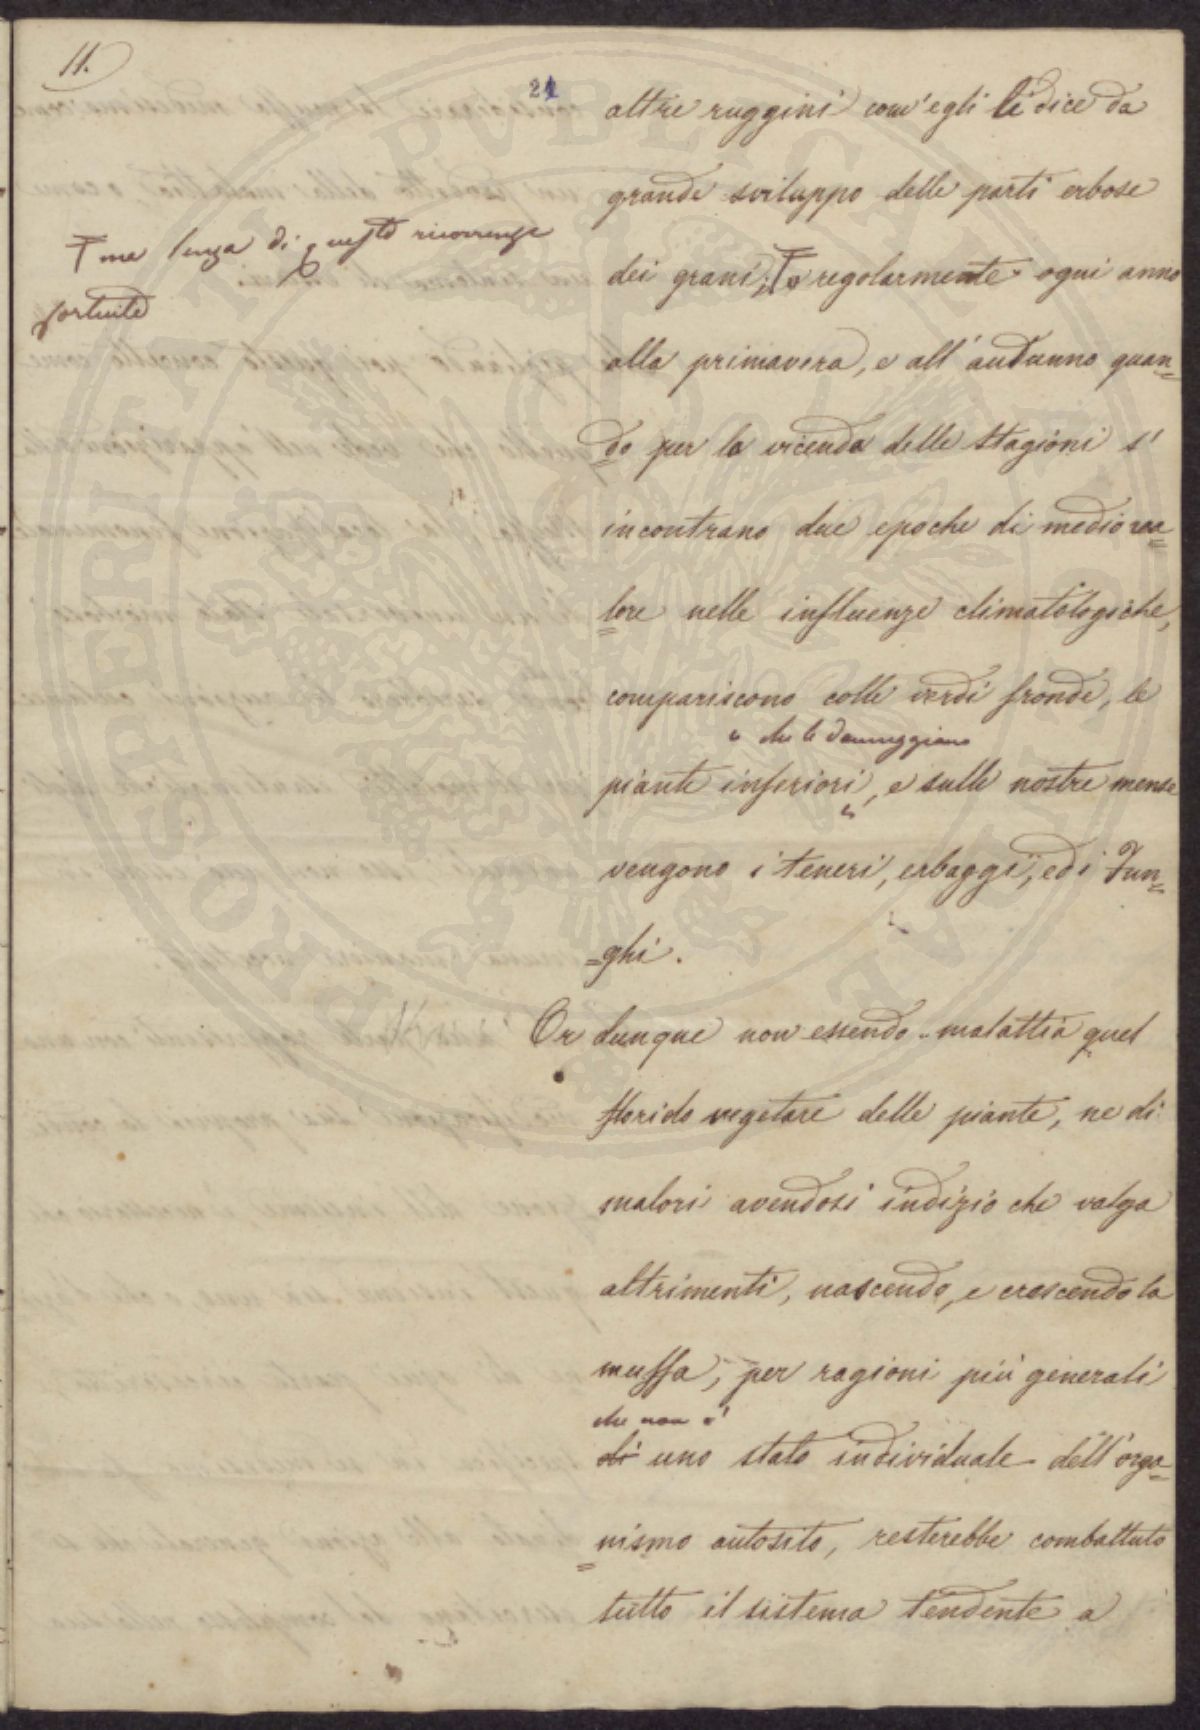 11.
21
altre ruggini com'egli le dice da
grande sviluppo delle parti erbose
ma senza di queste ricorrenze
fortuite
dei grani; e regolarmente ogni anno
alla primavera, e all'autunno quan=
=do per la vicenda delle stagioni s'
incontrano due epoche di medio va=
=lore nelle influenze climatologiche,
compariscono colle verdi fronde, le
che le danneggiano
piante inferiori, e sulle nostre mense
vengono i teneri, erbaggi, ed i Fun=
=ghi.
Or dunque non essendo malattia quel
florido vegetare delle piante, ne di
malori avendosi indizio che valga
altrimenti, nascendo, e crescendo la
muffa, per ragioni più generali
che non è
di uno stato individuale dell'orga=
=nismo autosito, resterebbe combattuto
tutto il sistema tendente a
PUBLICAE
PROSPERITATI